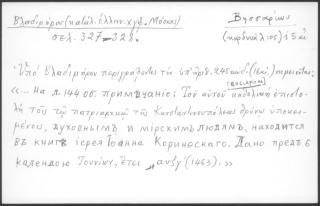 Βλαδιμήρου (κατάλ. ἑλλην. χγφ. Μόσχας)
σελ. 327-328.
Βησσαρίων
(καρδινάλιος) 15 αἰ
Ὑπὸ Βλαδιμήρου περιγράφονται τῶν ὑπ' ἀριθ. 245 κωδ. (16 αἰ.) σημειοῦται:
(Βησσαρίων)
«... На л. 144 об. примѣчаніе: Τοῦ αὐτοῦ καθολικὴ ἐπιστο-
λὴ τοῖς τῷ πατριαρχικῷ τῆς Κωνσταντινουπόλεως θρόνῳ ὑποκει-
μένοις, духовнымъ и мірскимъ людямъ, находится
въ книгѣ іерея Іоанна Коринѳскаго. Дано предъ 6
календою Ἰουνίου, ἔτει ͵αυξγʹ (1463).»